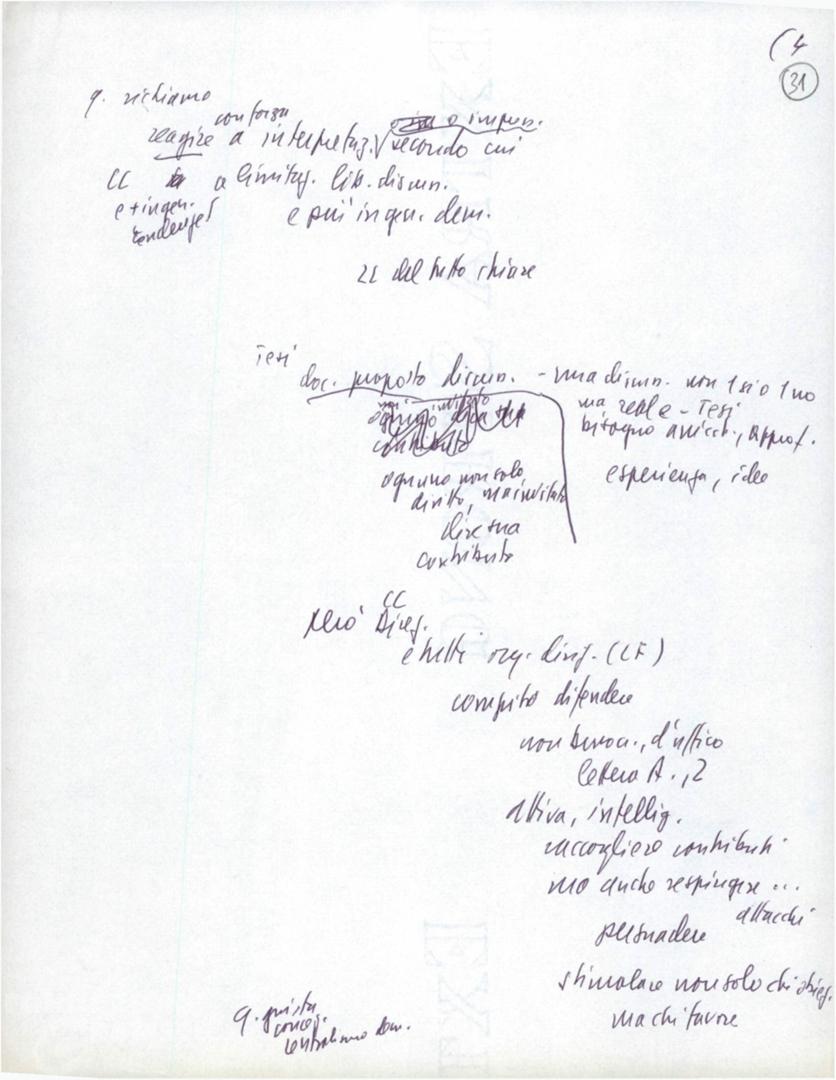 (4
31
q. richiamo
con forza
reagire a interpretaz. secondo cui
o impres.
CC a limitaz. lib. discuss.
e + ingen.
tendenze
e più ingen. dem.
del tutto chiare
Tesi
doc. proposto discuss. - ma discuss. non 1 sì o 1 no
ma reale - Tesi
bisogno arricch., approf.
esperienza, idee
ognuno non solo
diritto, ma invitato
dire sua
contributo
però CC
Direz.
e tutti org. dirig. (CF)
compito difendere
non buroc., d'ufficio
lettera A., 2
attiva, intellig.
raccogliere contributi
ma anche respingere ...
attacchi
persuadere
stimolare non solo chi obiez.
ma chi favore
q. giusta
concez.
centralismo dem.